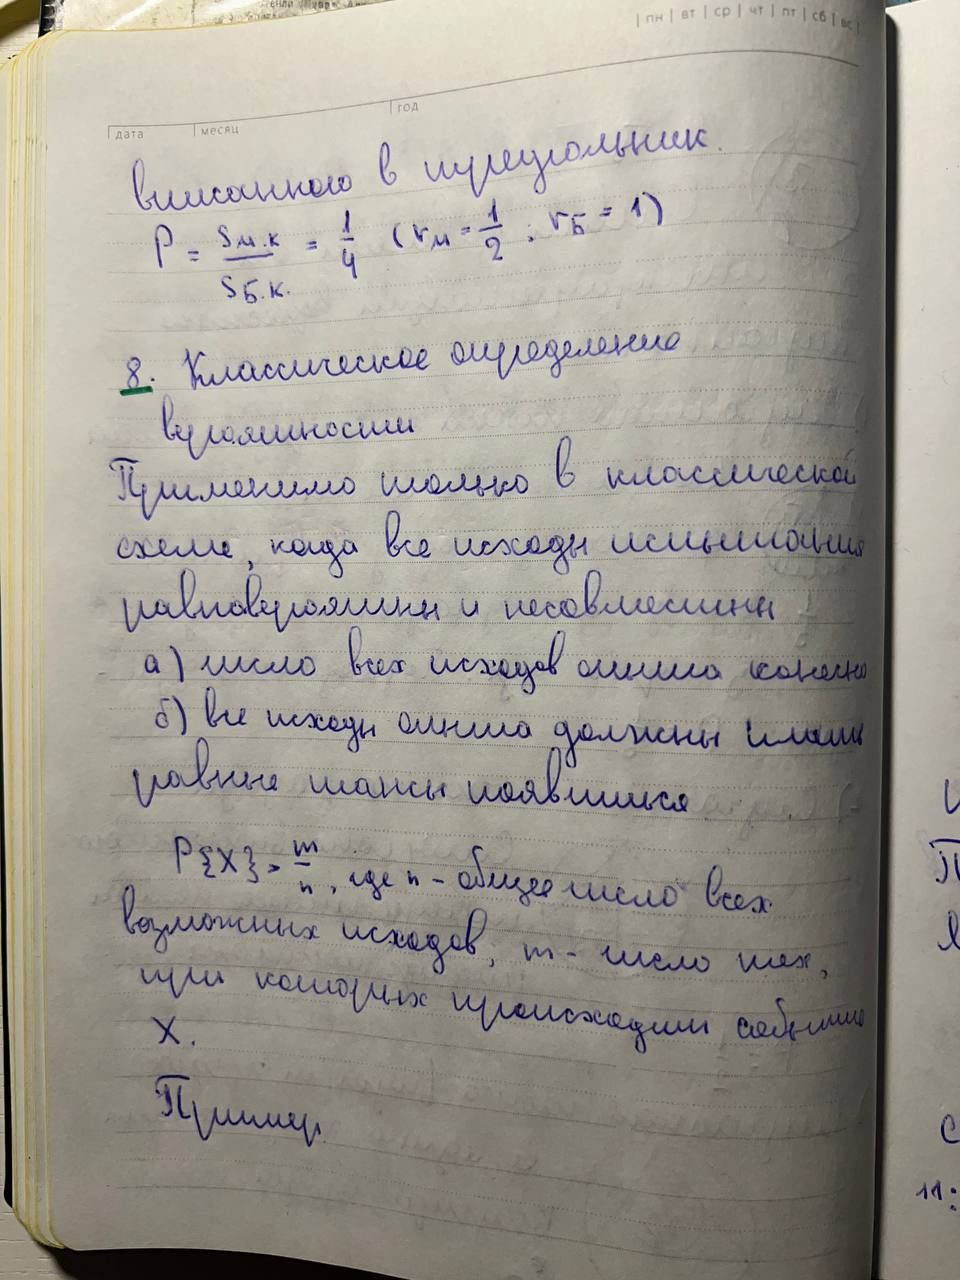 пн | вт | ср | чт | пт | сб | вс
дата месяц год
вписанного в треугольник.
P = Sм.к / Sб.к. = 1/4 (rм = 1/2 ; rБ = 1)
8. Классическое определение
вероятности
Применимо только в классической
схеме, когда все исходы испытания
равновероятны и несовместны
а) число всех исходов опыта конечно
б) все исходы опыта должны иметь
равные шансы появиться
P{X} = m/n, где n - общее число всех
возможных исходов, m - число тех,
при которых происходит событие
X.
Пример
11: